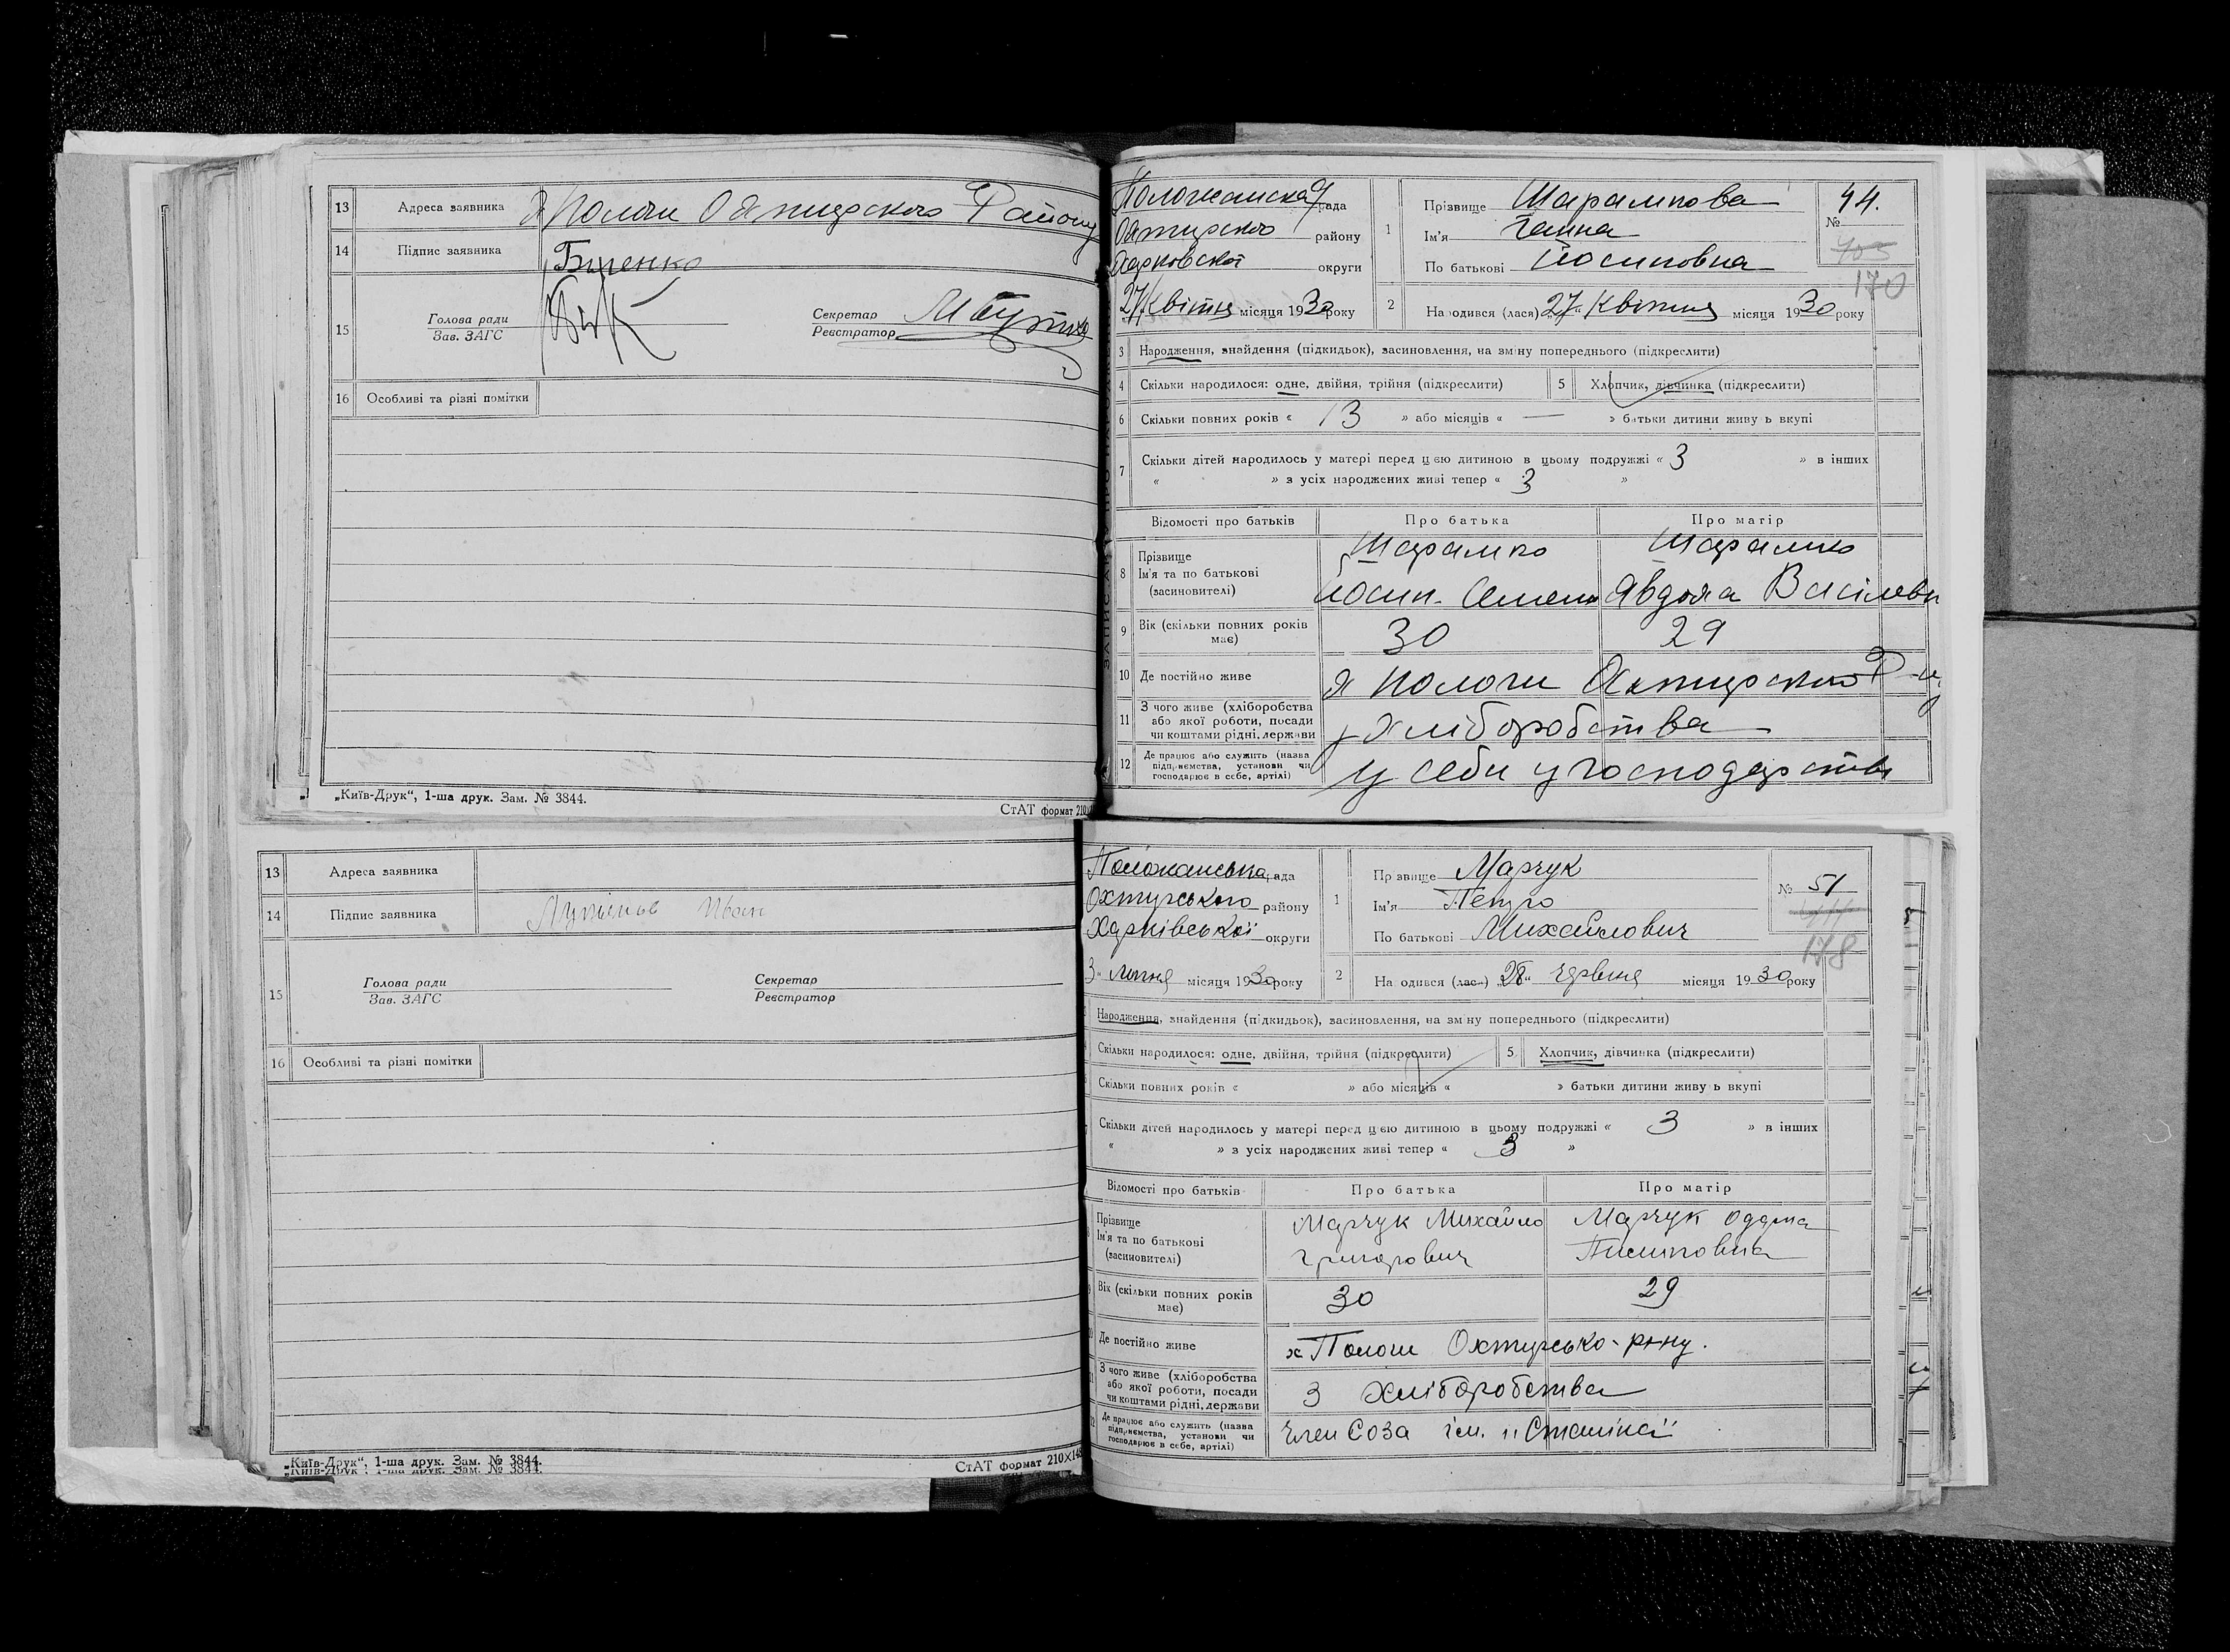 13 Адреса заявника х Пологи Охтирского Району
14 Підпис заявника Бутенко
15 Голова ради
Зав. ЗАГС
Секретар
Реєстратор
16 Особливі та різні помітки
„Київ-Друк“, 1-ша друк. Зам. № 3844.
СтАТ формат 210х1
рада
району
Харковской округи
27 Квітня місяця 1930 року
1 Прізвище
Ім'я Ганна
По батькові Йосиповна
№ 44.
170
2 Народився (лася) „27“ Квітня місяця 1930 року
3 Народження, знайдення (підкидьок), засиновлення, на зміну попереднього (підкреслити)
4 Скільки народилося: одне, двійня, трійня (підкреслити)
5 Хлопчик, дівчинка (підкреслити)
6 Скільки повних років « 13 » або місяців « — » батьки дитини живуть вкупі
7 Скільки дітей народилось у матері перед цією дитиною в цьому подружжі « 3 » в інших
« » з усіх народжених живі тепер « 3 »
Відомості про батьків Про батька Про матір
8 Прізвище
Ім'я та по батькові
(засиновителі)
Йосип Явдоха
9 Вік (скільки повних років має) 30 29
10 Де постійно живе х Пологи Охтирского
11 З чого живе (хліборобства
або якої роботи, посади
чи коштами рідні, держави
Хліборобства
12 Де працює або служить (назва
підприємства, установи чи
господарює в себе, артілі)
у себи у господарстві
13 Адреса заявника
14 Підпис заявника Іван
15 Голова ради
Зав. ЗАГС
Секретар
Реєстратор
16 Особливі та різні помітки
„Київ-Друк“, 1-ша друк. Зам. № 3844.
СтАТ формат 210х148
Положанська рада
Охтирського району
Харківської округи
3 липня місяця 1930 року
1 Прізвище Марчук
Ім'я Петро
По батькові Михайлович
№ 51
178
2 Народився (лася) „28“ червня місяця 1930 року
Народження, знайдення (підкидьок), засиновлення, на зміну попереднього (підкреслити)
Скільки народилося: одне, двійня, трійня (підкреслити)
5 Хлопчик, дівчинка (підкреслити)
Скільки повних років « » або місяців « » батьки дитини живуть вкупі
Скільки дітей народилось у матері перед цією дитиною в цьому подружжі « 3 » в інших
« » з усіх народжених живі тепер « 3 »
Відомості про батьків Про батька Про матір
Прізвище
Ім'я та по батькові
(засиновителі)
Марчук Михайло
Григорович
Марчук
Вік (скільки повних років має) 30 29
Де постійно живе х Пологи Охтирсько- р-ну.
З чого живе (хліборобства
або якої роботи, посади
чи коштами рідні, держави
З Хліборобства
Де працює або служить (назва
підприємства, установи чи
господарює в себе, артілі)
член Соза ім.